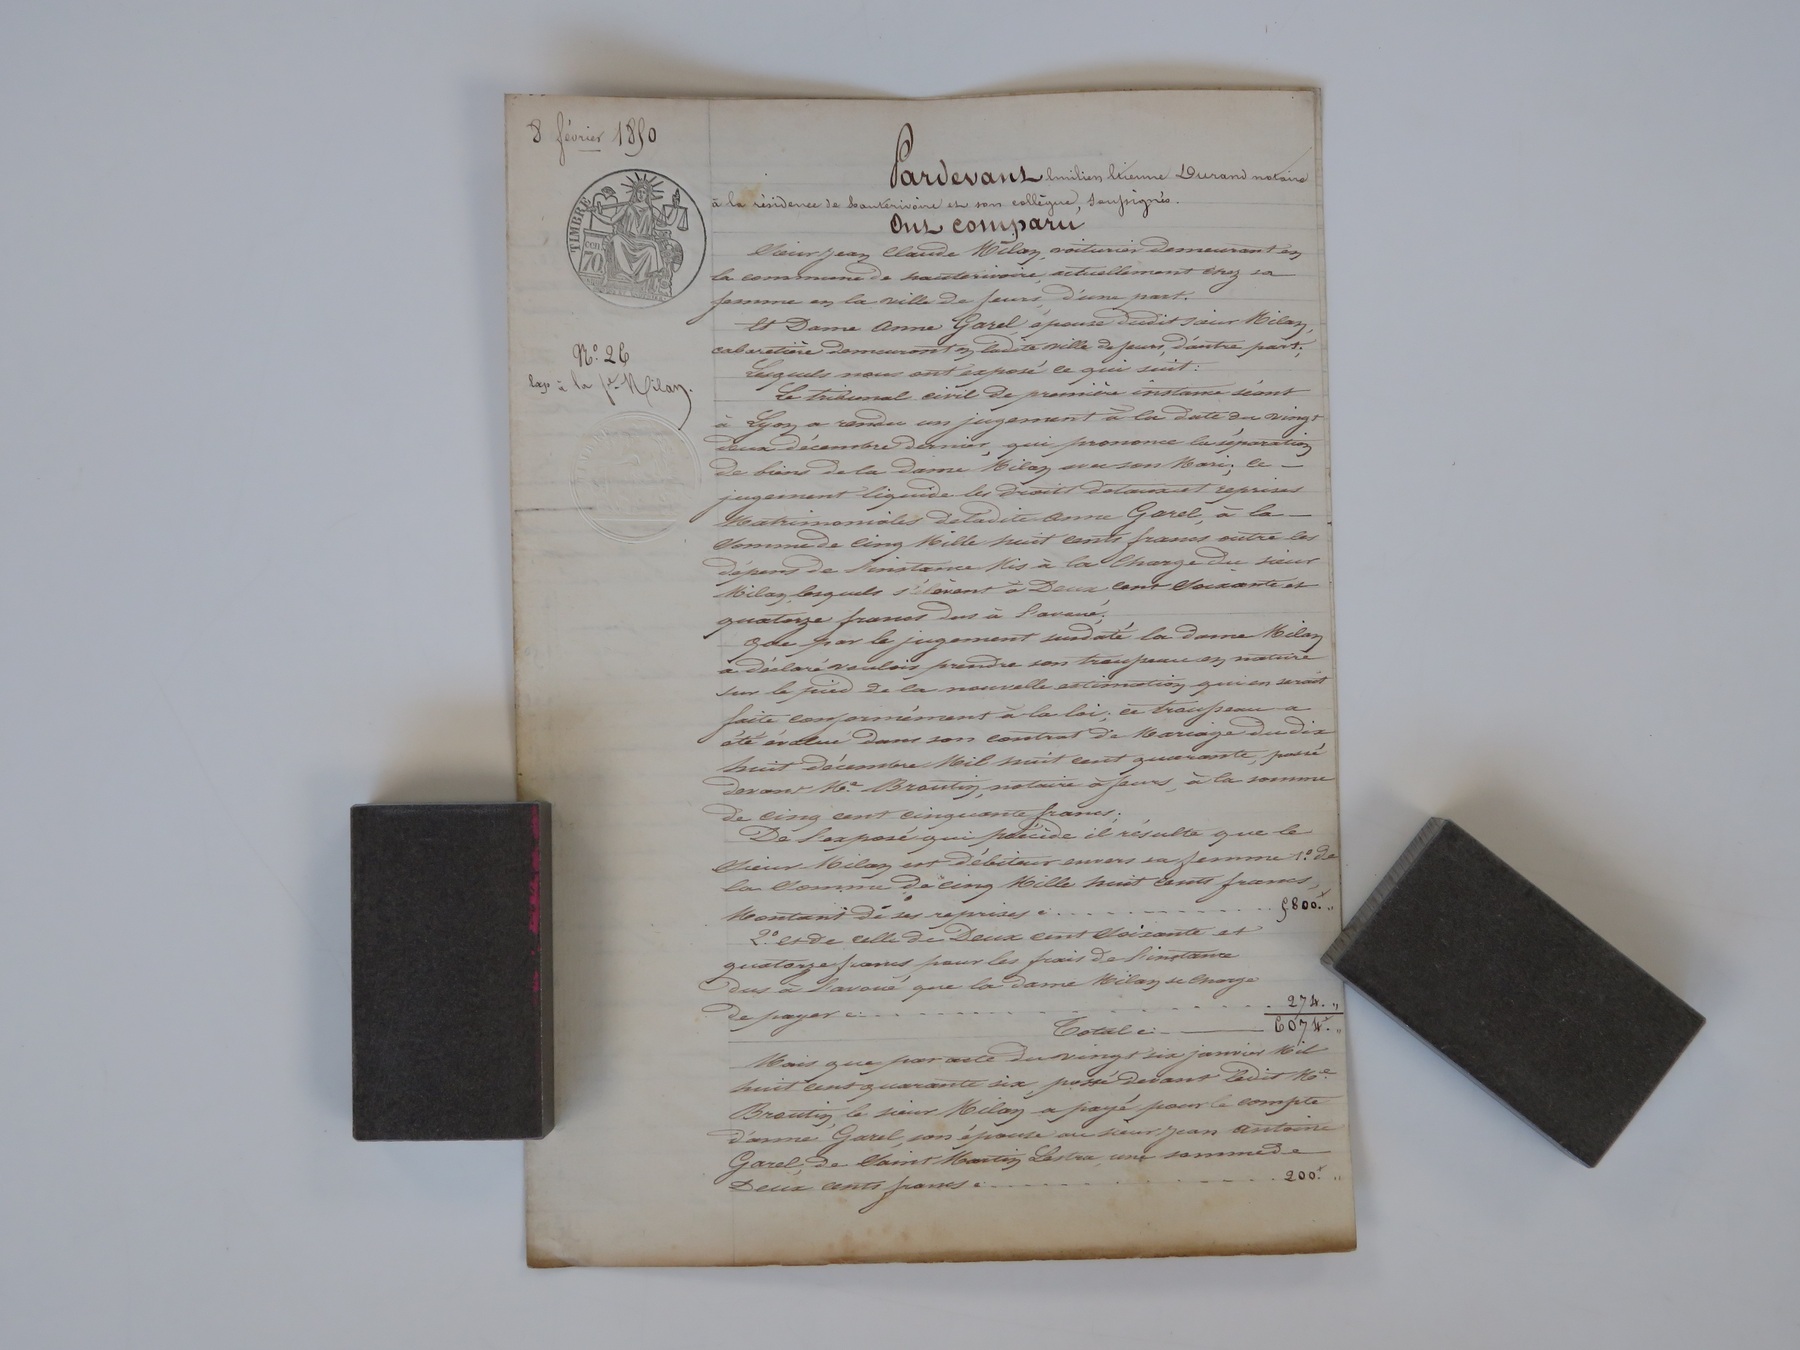 8 février 1850
TIMBRE
70
N.° 26
Exp à la f.e Milan.
Pardevant Emilien Etienne Durand notaire
à la résidence de hauterivoire et son collègue, soussignés.
Ont comparu
Sieur Jean Claude Milan, voiturier demeurant en
la commune de hauterivoire, actuellement chez sa
femme en la ville de feurs, d'une part.
Et Dame Anne Garel, épouse dudit sieur Milan,
cabaretière demeurant en ladite ville de feurs, d'autre part;
Lesquels nous ont exposé ce qui suit:
Le tribunal civil de première instance séant
à Lyon a rendu un jugement à la date du vingt
deux décembre dernier, qui prononce la séparation
de biens de la dame Milan avec son Mari; ce
jugement liquide les droits dotaux et reprises
Matrimoniales de ladite Anne Garel, à la
Somme de Cinq Mille huit cents francs outre les
dépens de l'instance Mis à la Charge du sieur
Milan, lesquels s'élèvent à Deux cent Soixante et
quatorze francs dus à l'avoué;
Que par le jugement susdaté la dame Milan
a déclaré vouloir prendre son trousseau en nature
sur le pied de la nouvelle estimation qui en serait
faite conformément à la loi; ce trousseau a
été évalué dans son contrat de Mariage du dix
huit décembre Mil huit cent quarante, passé
devant M.e Broutin, notaire à feurs, à la somme
de cinq cent cinquante francs;
De l'exposé qui précède il résulte que le
Sieur Milan est débiteur envers sa femme 1.° de
la Somme de Cinq Mille huit cents francs,
Montant de ses reprises c: 5800.f "
2.° et de celle de Deux cent Soixante et
quatorze francs pour les frais de l'instance
dus à l'avoué que la dame Milan se charge
de payer c: 274. "
Total c: 6074.f "
Mais que par acte du vingt six janvier Mil
huit cent quarante six, passé devant ledit M.e
Broutin, le sieur Milan a payé pour le compte
d'anne Garel, son épouse au sieur Jean Antoine
Garel, de Saint Martin Lestra, une somme de
Deux cents francs c: 200.f "